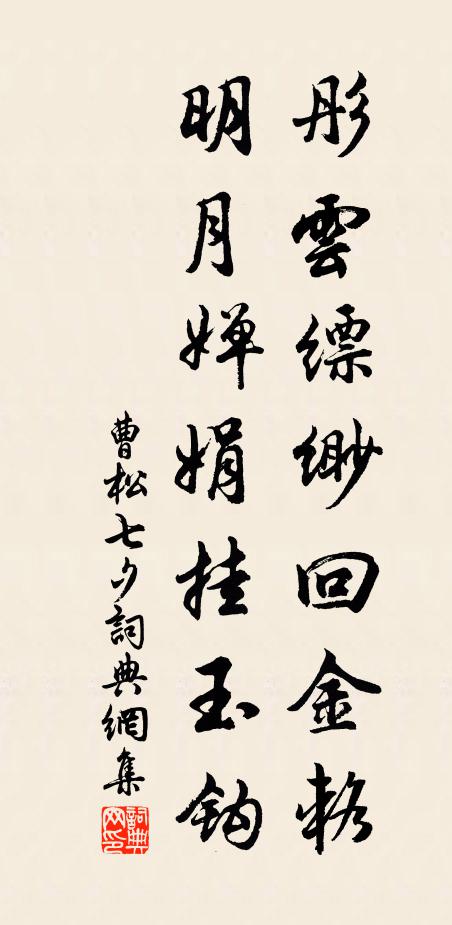 彤雲縹緲回金輅
明月嬋娟挂玉鈎
曹松七夕詞典網集
詞典网印